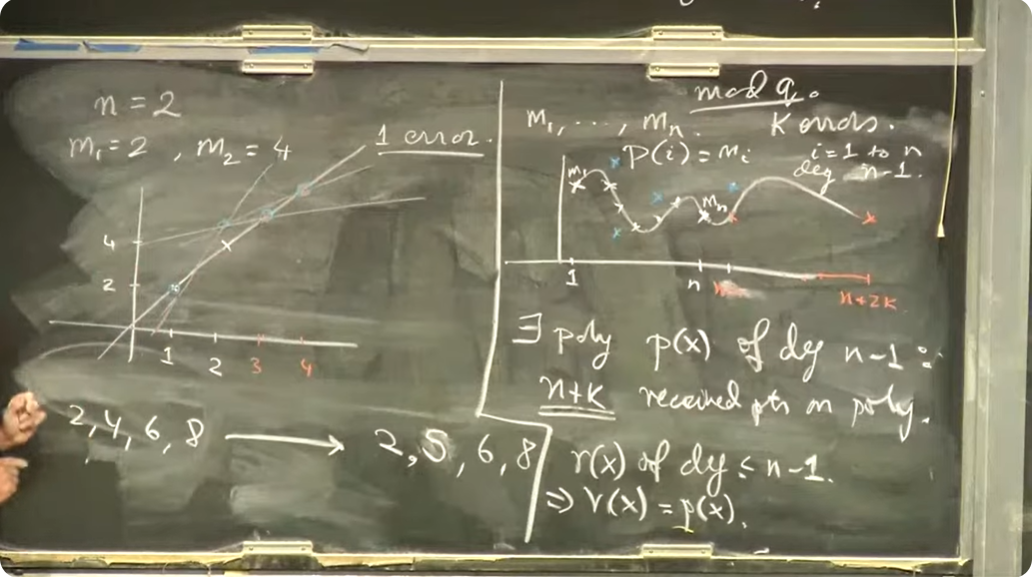 n = 2
m₁ = 2 , m₂ = 4
1 error.
4
2
1 2 3 4
2, 4, 6, 8 → 2, 5, 6, 8
mod q.
m₁, ..., mₙ. K errors.
P(i) = mᵢ i = 1 to n
deg n-1.
m₁
mₙ
1 n n+2K
∃ poly p(x) of deg n-1 :
n+K received pts on poly.
r(x) of deg ≤ n-1.
⇒ r(x) = p(x).